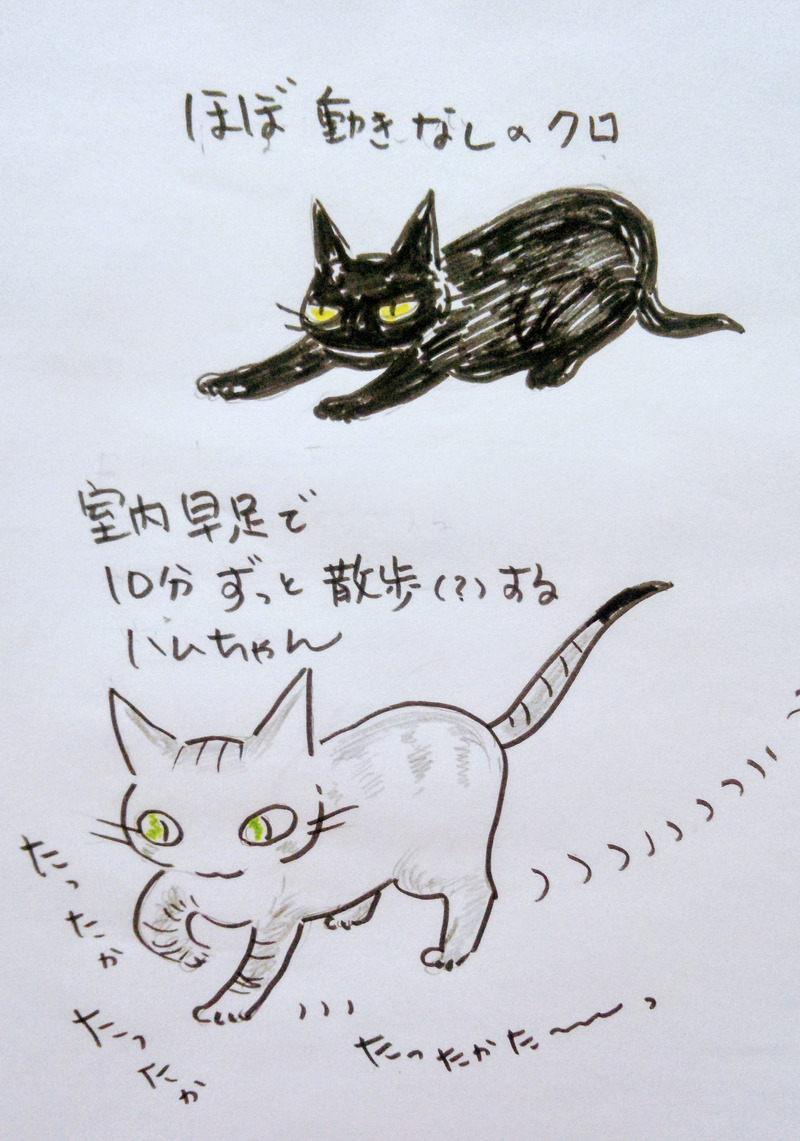 ほぼ動きなしのクロ
室内早足で
10分ずっと散歩(?)する
ハムちゃん
たったか
たったか
たったかた〜〜っ